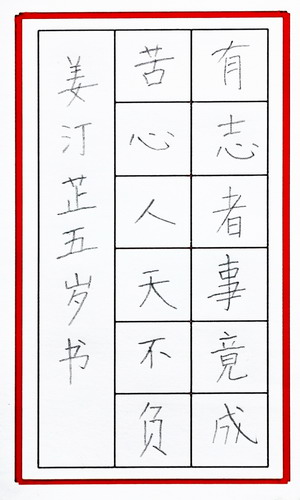 有志者事竟成
苦心人天不负
姜汀芷五岁书